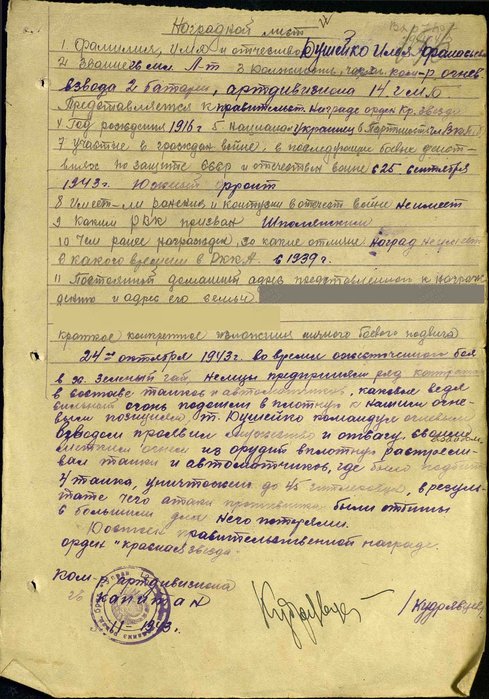 Наградной лист
1. Фамилия, имя и отчество Душейко Илья
2. Звание мл. л-т 3 Должность, часть ком-р огнев
взвода 2 батареи, артдивизиона 14
Представляется к правительст. награде орден Кр. Звезда
4 Год рождения 1916 г 5. Национал Украинец 6 Партийность
7 Участие в граждан войне, в последующих боевых дейст-
виях по защите СССР и отечествен войне с 25 сентября
1943 г. Южный фронт
8 Имеет-ли ранения и контузии в отечест войне не имеет
9 Каким РВК призван Шполянским
10 Чем ранее награжден, за какие отличия наград не имеет
С какого времени в РККА с 1939 г.
11 Постоянный домашний адрес представленного к награж-
дению и адрес его семьи
краткое конкретное изложения личного боевого подвига
24го октября 1943 г. во время ожесточенного боя
в х. Зеленый гай, немцы предприняли ряд контратак
в составе танков и автоматчиков, каковые ведя
сильный огонь подошли в плотную к нашим огне-
вым позициям т. Душейко командуя огневым
взводом проявил мужество и отвагу, своим
метким огнем из орудий в плотную расстрели-
вал танки и автоматчиков, где было подбито
4 танка, уничтожено до 45 гитлеровцев, в резуль-
тате чего атаки противника были отбиты
с большими для него потерями.
Достоин правительственной награде
орден "Красная звезда"
Ком-р артдивизиона
капитан
/Кудрявцев
11 1943 г.